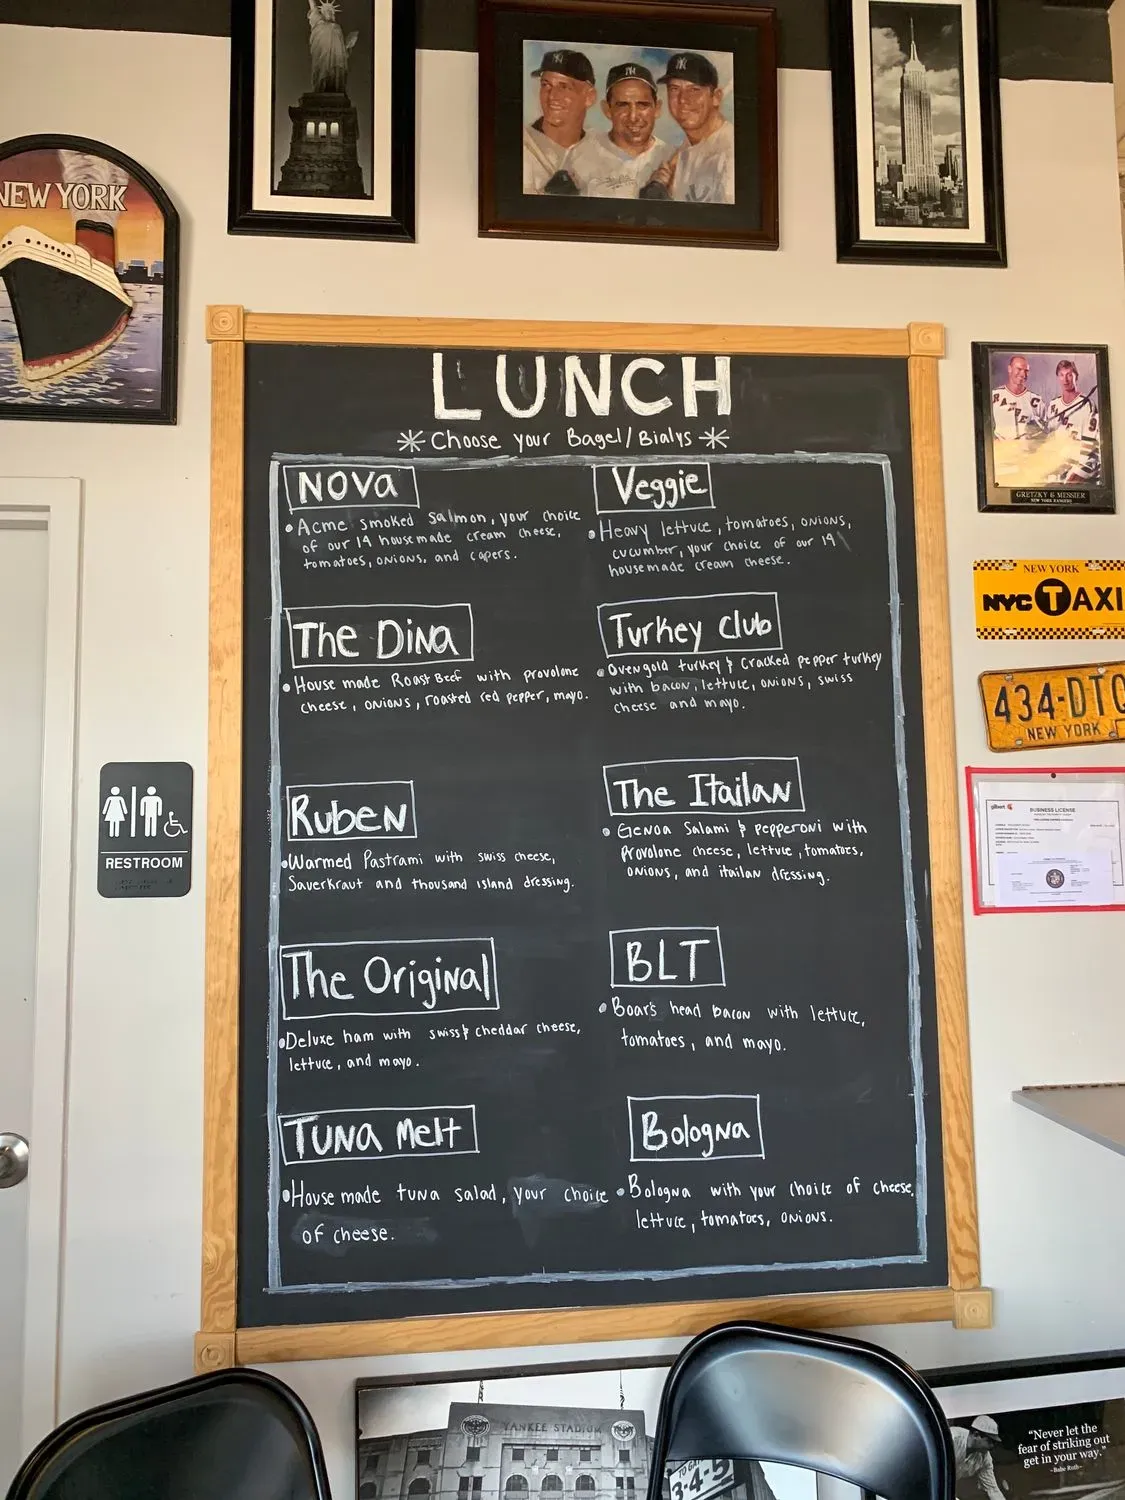 NEW YORK
GRETZKY & MESSIER
NEW YORK RANGERS
NEW YORK
NYC TAXI
434-DTC
NEW YORK
gilbert
BUSINESS LICENSE
RESTROOM
LUNCH
Choose your Bagel/Bialys
NOVA
Acme smoked salmon, your choice
of our 19 housemade cream cheese,
tomatoes, onions, and capers.
Veggie
Heavy lettuce, tomatoes, onions,
cucumber, your choice of our 19
housemade cream cheese.
The Dina
House made Roast Beef with provolone
cheese, onions, roasted red pepper, mayo.
Turkey Club
Ovengold turkey & Cracked pepper turkey
with bacon, lettuce, onions, swiss
cheese and mayo.
Ruben
Warmed Pastrami with swiss cheese,
Sauerkraut and thousand island dressing.
The Itailan
Genoa Salami & pepperoni with
Provolone cheese, lettuce, tomatoes,
onions, and itailan dressing.
The Original
Deluxe ham with swiss & cheddar cheese,
lettuce, and mayo.
BLT
Boar's head bacon with lettuce,
tomatoes, and mayo.
Tuna Melt
House made tuna salad, your choice
of cheese.
Bologna
Bologna with your choice of cheese,
lettuce, tomatoes, onions.
YANKEE STADIUM
3-4-5
"Never let the
fear of striking out
get in your way."
-Babe Ruth-